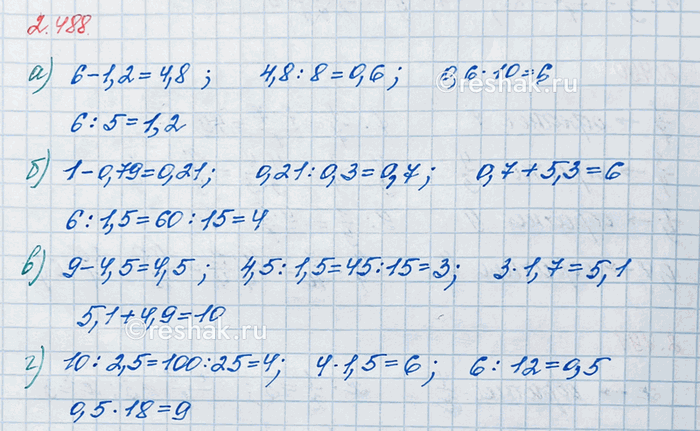 2.488
а) 6-1,2=4,8; 4,8:8=0,6; 0,6·10=6
6:5=1,2
б) 1-0,79=0,21; 0,21:0,3=0,7; 0,7+5,3=6
6:1,5=60:15=4
в) 9-4,5=4,5; 4,5:1,5=45:15=3; 3·1,7=5,1
5,1+4,9=10
©reshak.ru
г) 10:2,5=100:25=4; 4·1,5=6; 6:12=0,5
0,5·18=9